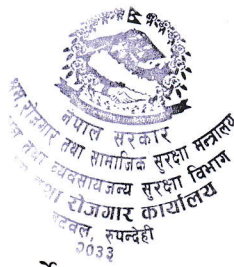 नेपाल सरकार
श्रम रोजगार तथा सामाजिक सुरक्षा मन्त्रालय
श्रम तथा व्यवसायजन्य सुरक्षा विभाग
तथा रोजगार कार्यालय
बुटवल, रुपन्देही
२०३३